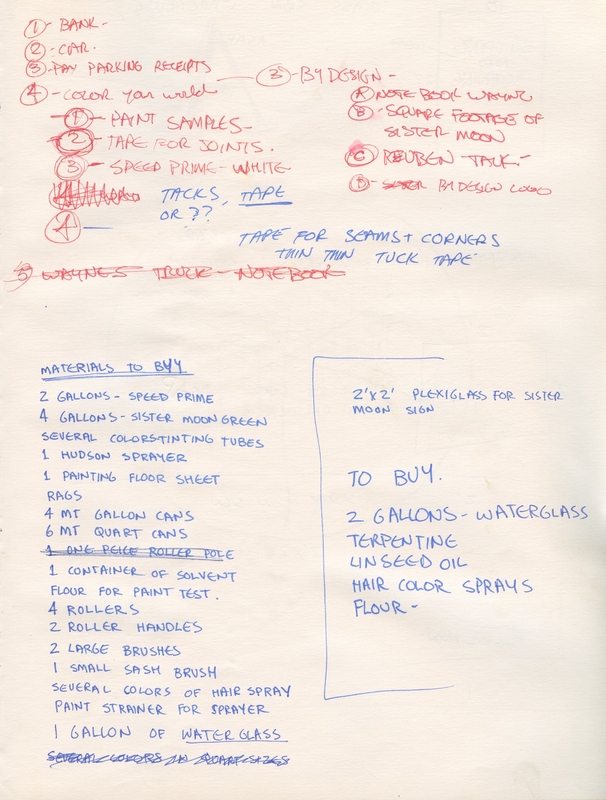 1 - BANK -
2 - CAR.
3 - PAY PARKING RECEIPTS
4 - COLOR YOUR WORLD
1 - PAINT SAMPLES -
2 - TAPE FOR JOINTS.
3 - SPEED PRIME - WHITE.
TACKS, TAPE
OR ??
4 -
TAPE FOR SEAMS + CORNERS
THIN THIN TUCK TAPE
5 - WAYNES TRUCK - NOTEBOOK
3 - BY DESIGN -
A NOTE BOOK WAYNE
B - SQUARE FOOTAGE OF
SISTER MOON
C REUBEN - TALK -
D - BY DESIGN LOGO
MATERIALS TO BUY
2 GALLONS - SPEED PRIME
4 GALLONS - SISTER MOON GREEN
SEVERAL COLORS TINTING TUBES
1 HUDSON SPRAYER
1 PAINTING FLOOR SHEET
RAGS
4 MT GALLON CANS
6 MT QUART CANS
1 ONE PEICE ROLLER POLE
1 CONTAINER OF SOLVENT
FLOUR FOR PAINT TEST.
4 ROLLERS
2 ROLLER HANDLES
2 LARGE BRUSHES
1 SMALL SASH BRUSH
SEVERAL COLORS OF HAIR SPRAY
PAINT STRAINER FOR SPRAYER
1 GALLON OF WATERGLASS
SEVERAL COLORS IN QUART SIZES
2'x2' PLEXIGLASS FOR SISTER
MOON SIGN
TO BUY.
2 GALLONS - WATERGLASS
TERPENTINE
LINSEED OIL
HAIR COLOR SPRAYS
FLOUR -